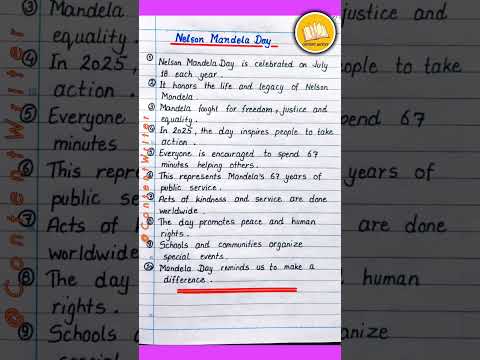 Nelson Mandela Day
① Nelson Mandela Day is celebrated on July
18 each year.
② It honors the life and legacy of Nelson
Mandela
③ Mandela fought for freedom, justice and
equality.
④ In 2025, the day inspires people to take
action.
⑤ Everyone is encouraged to spend 67
minutes helping others.
⑥ This represents Mandela's 67 years of
public service.
⑦ Acts of kindness and service are done
worldwide.
⑧ The day promotes peace and human
rights.
⑨ Schools and communities organize
special events.
⑩ Mandela Day reminds us to make a
difference.
@Content Writer
③ Mandela
equality.
④ In 2025,
action.
⑤ Everyone
minutes
⑥ This repre
public
⑦ Acts of
worldwide
⑧ The day
rights.
⑨ Schools
@Content Writer
justice and
people to take
spend 67
years of
are done
human